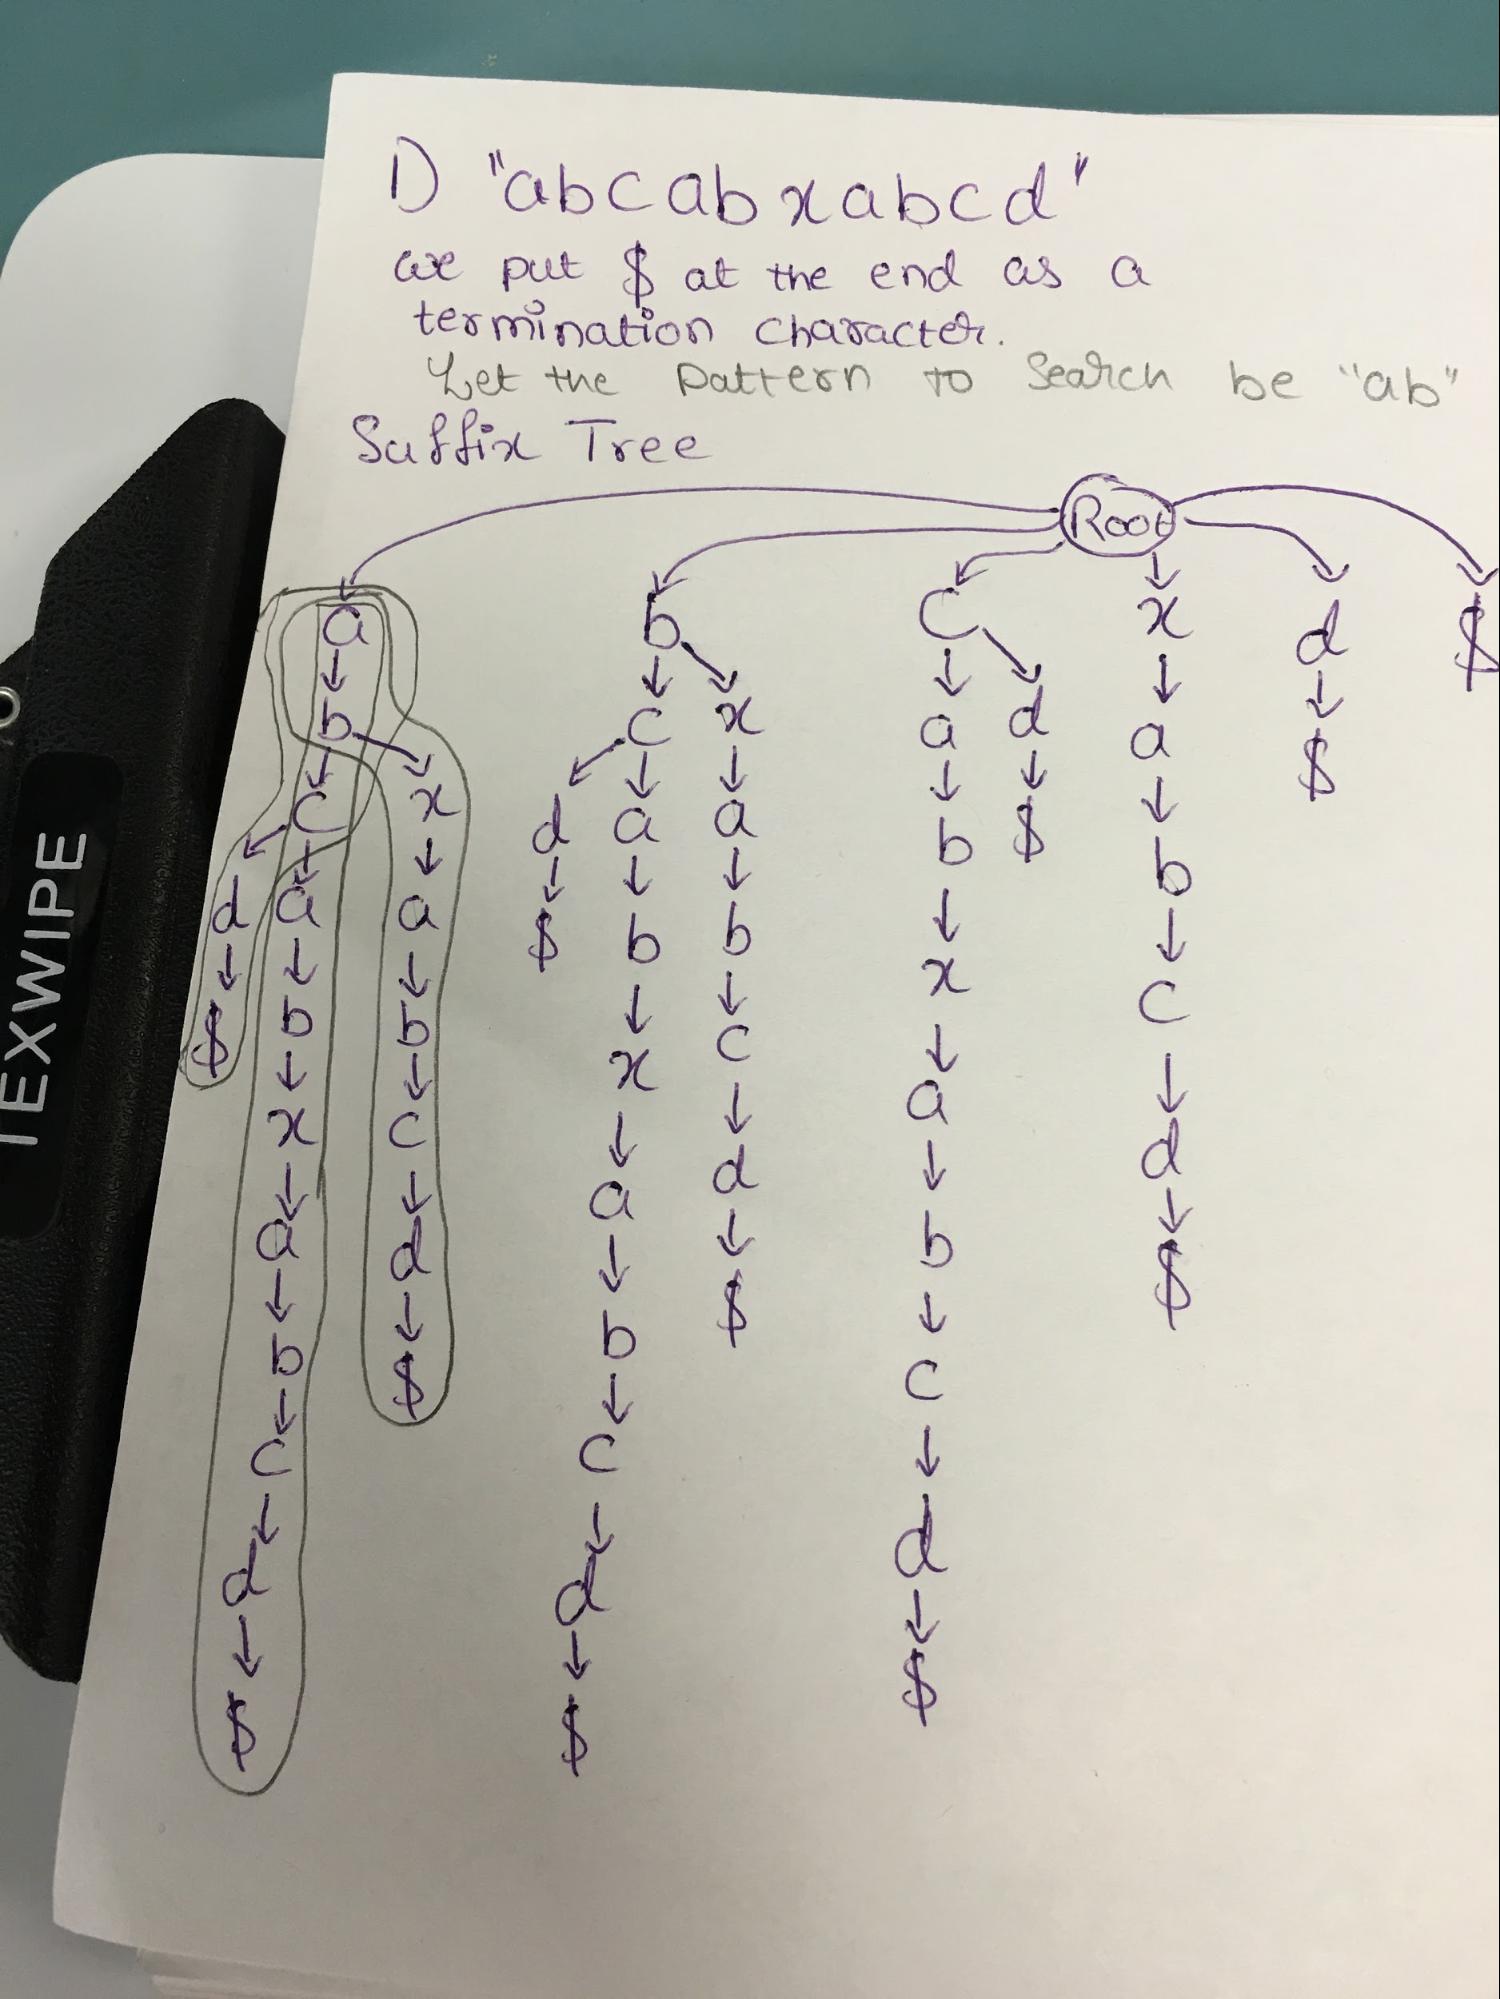 1) "abcabxabcd"
we put $ at the end as a
termination character.
Let the pattern to search be "ab"
Suffix Tree
Root
a b c x d $
b c x a d a $
c x d a a b $ b
d a a $ b b x c
$ b b x c a d
x c a d b $
a d b $ c
b $ c d
c d $
d $
$
TEXWIPE